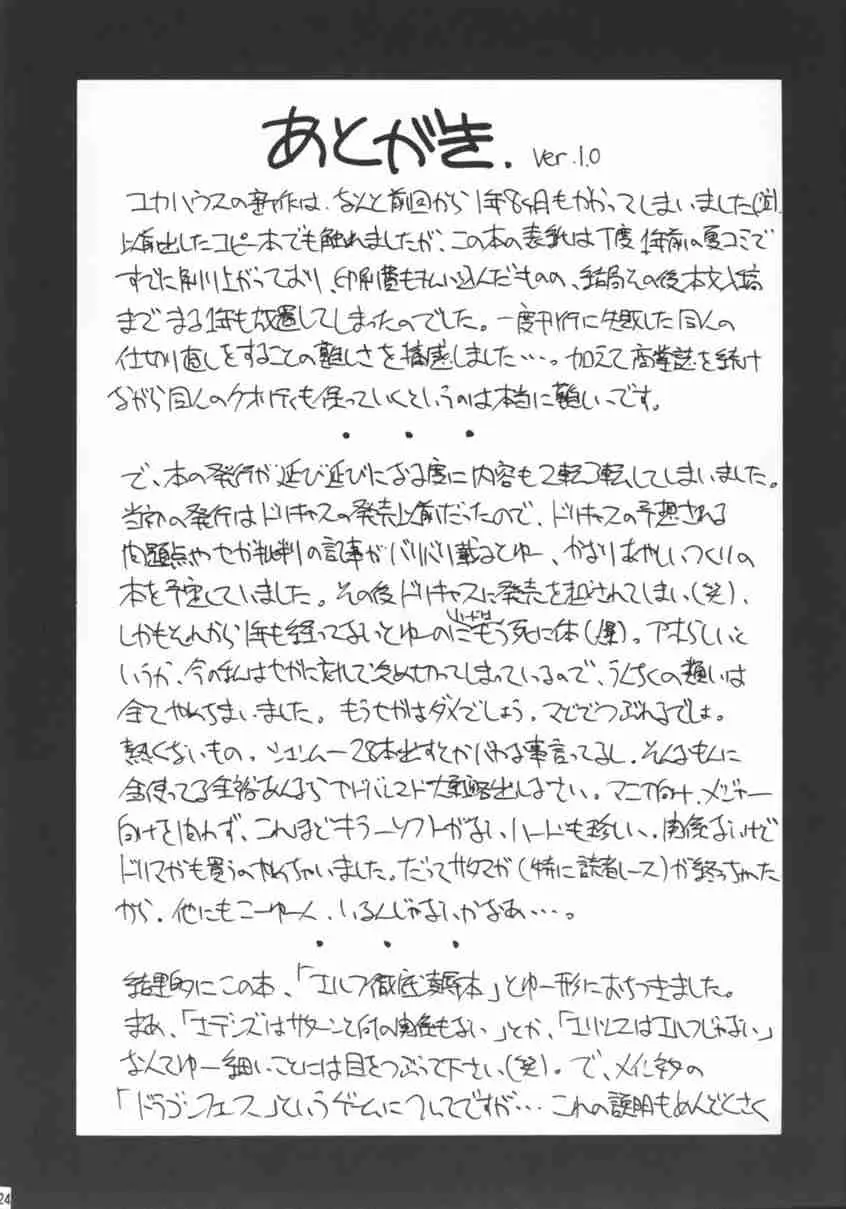 あとがき. ver.1.0
ユカハウスの新作は、なんと前回から1年8ヶ月もかかってしまいました
以前出したコピー本でも触れましたが、この本の表紙は丁度1年前の夏コミで
すでに刷り上がっており、印刷費も払い込んだものの、結局その後本文入稿
までまる1年も放置してしまったのでした。一度刊行に失敗した同人の
仕切り直しをすることの難しさを痛感しました…。加えて商業誌を続け
ながら同人のクオリティも保っていくというのは本当に難しいです。
・・・
で、本の発行が延び延びになる度に内容も2転3転してしまいました。
当初の発行はドリキャスの発売以前だったので、ドリキャスの予想される
問題点やセガ批判の記事がバリバリ載るとゆー、かなりあやしいつくりの
本を予定していました。その後ドリキャスに発売を越されてしまい(笑)、
しかもそれから1年も経ってないとゆーのにもう死に体(爆)。アホらしいと
いうか、今の私はセガに対して冷め切ってしまっているので、うんちくの類いは
全てやめちまいました。もうセガはダメでしょう。マジでつぶれるでしょ。
熱くないもの。シェンムー28本出すとかバカな事言ってるし。そんなもんに
金使ってる余裕あんならアドバンスド大戦略出しなさい。マニア向け、メジャー
向けを問わず、これほどキラーソフトがないハードも珍しい。関係ないけど
ドリマガも買うのやめちゃいました。だってサタマガ(特に読者レース)が終っちゃった
から。他にもこーゆー人、いるんじゃないかなあ…。
・・・
結果的にこの本、「エルフ徹底凌辱本」とゆー形におちつきました。
まあ、「エデンズはサターンと何の関係もない」とか、「エリスはエルフじゃない」
なんてゆー細いことには目をつぶって下さい(笑)。で、メインネタの
「ドラゴンフェス」というゲームについてですが…これの説明もめんどくさく
24